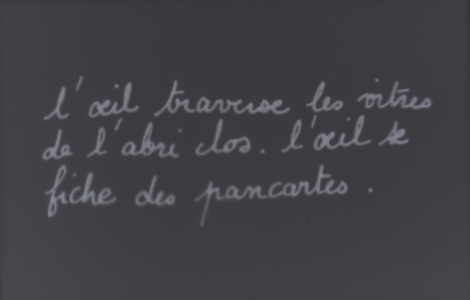 l'œil traverse les vitres
de l'abri clos. l'œil se
fiche des pancartes.